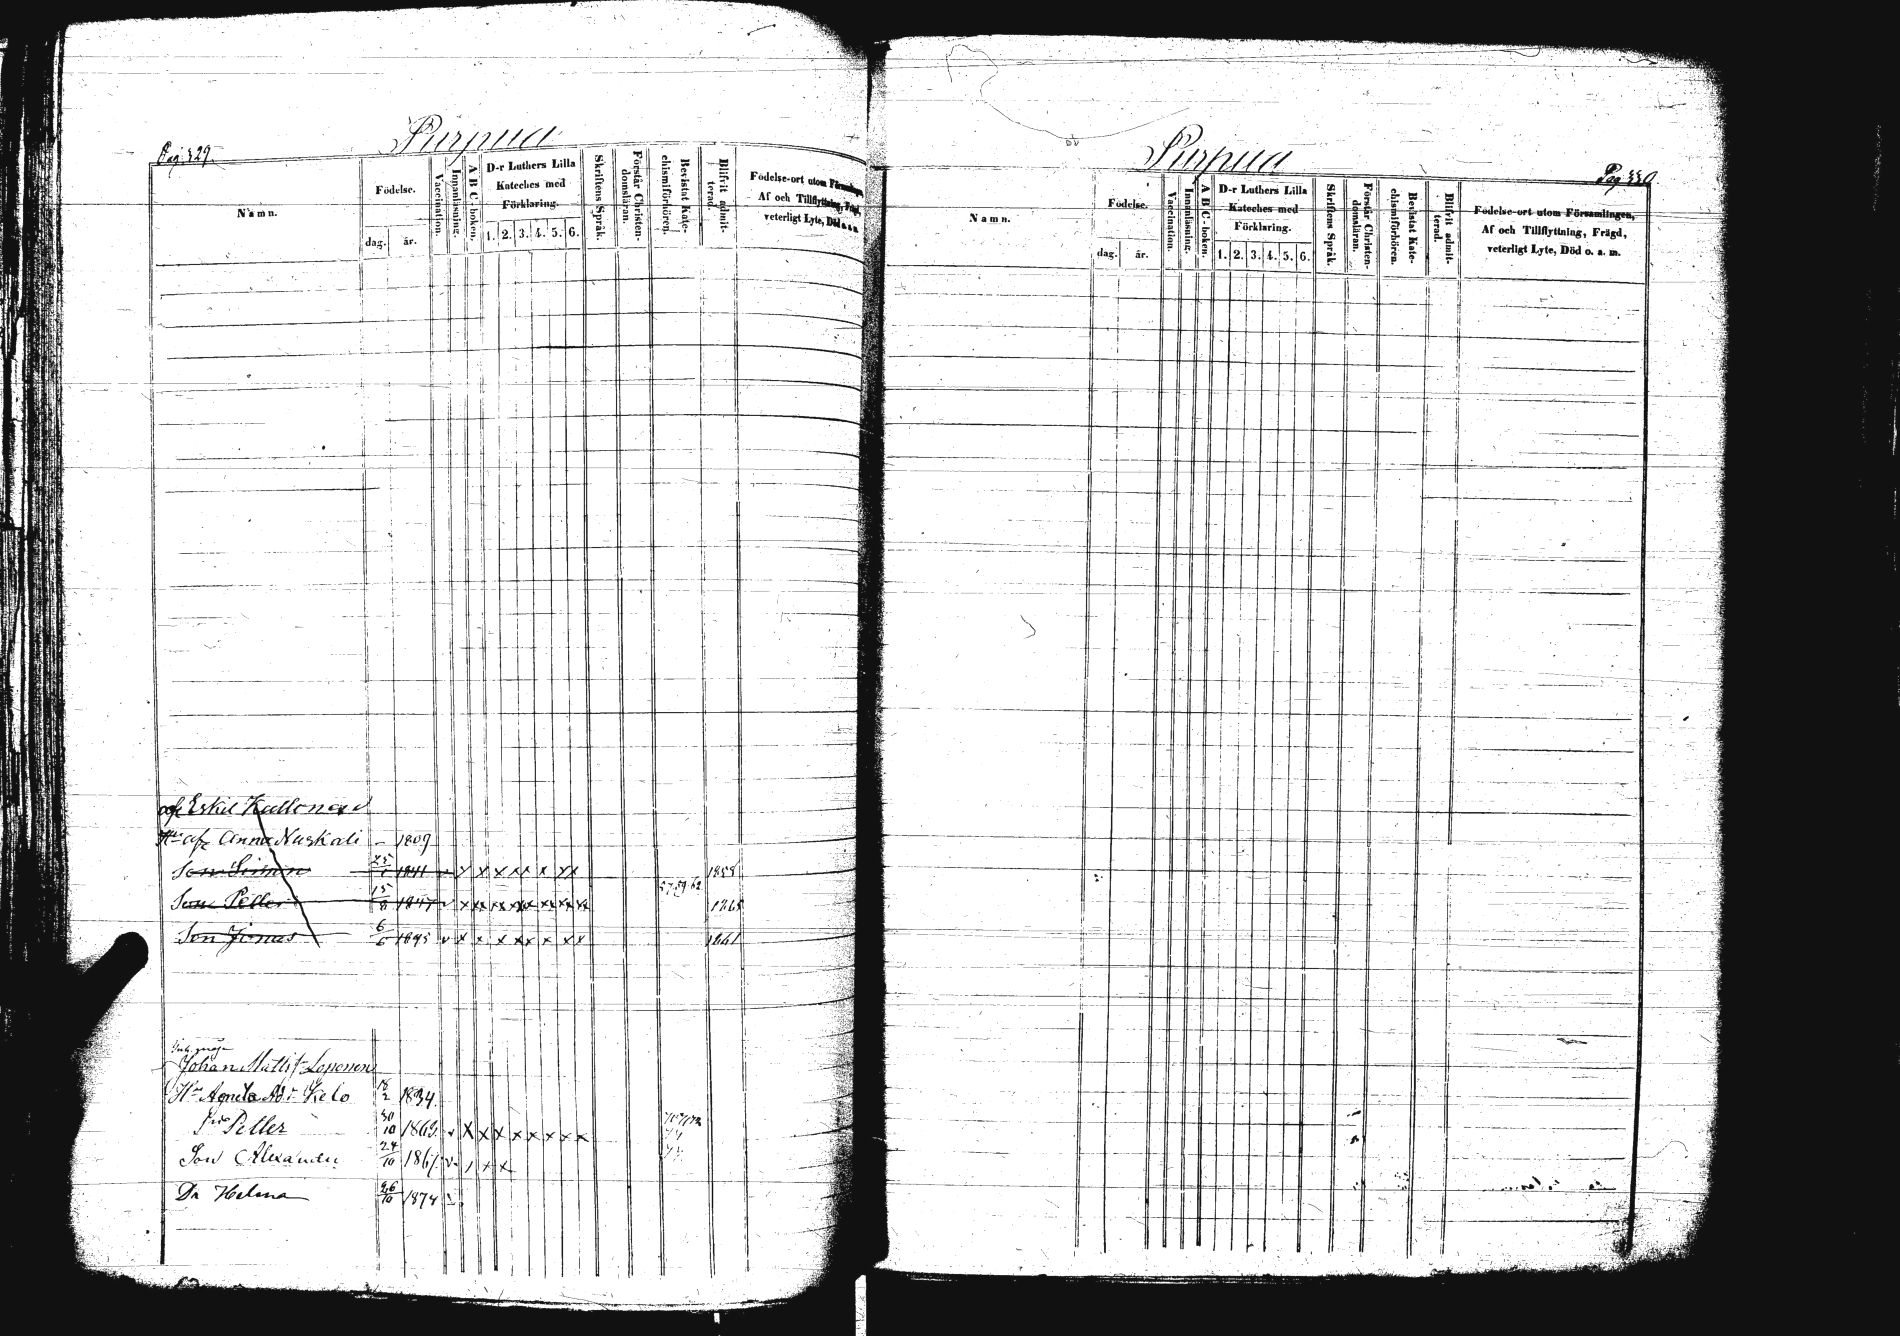 Pag. 329.
Purpua
Namn.
Födelse.
dag.
år.
Vaccination.
Innanläsning.
A B C-boken.
D-r Luthers Lilla
Kateches med
Förklaring.
1. 2. 3. 4. 5. 6.
Skriftens Språk.
Förstår Christen-
domsläran.
Bevistat Kate-
chismiförhören.
Blifvit admit-
terad.
Födelse-ort utom Församlingen,
Af och Tillflyttning, Frägd,
veterligt Lyte, Död o. a. m.
afl. Eskil
Hu afl Anna – 1809
Son Simon 1841 v x x x x x x x x 1858
57.59.62
Son Petter 15/8 1847 v x xx xx xx xx xx xx 1865
Son Jonas 6/6 1845 v x x x xx x x x 1861
Johan Matts
Hu Agneta Kelo 18/2 1834.
Petter 30/10 1863. v x x x x x x x x
Son Alexander 24/10 1867. v x x
Dr Helena 26/10 1874
Purpua
Pag 330.
Namn.
Födelse.
dag.
år.
Vaccination.
Innanläsning.
A B C-boken.
D-r Luthers Lilla
Kateches med
Förklaring.
1. 2. 3. 4. 5. 6.
Skriftens Språk.
Förstår Christen-
domsläran.
Bevistat Kate-
chismiförhören.
Blifvit admit-
terad.
Födelse-ort utom Församlingen,
Af och Tillflyttning, Frägd,
veterligt Lyte, Död o. a. m.